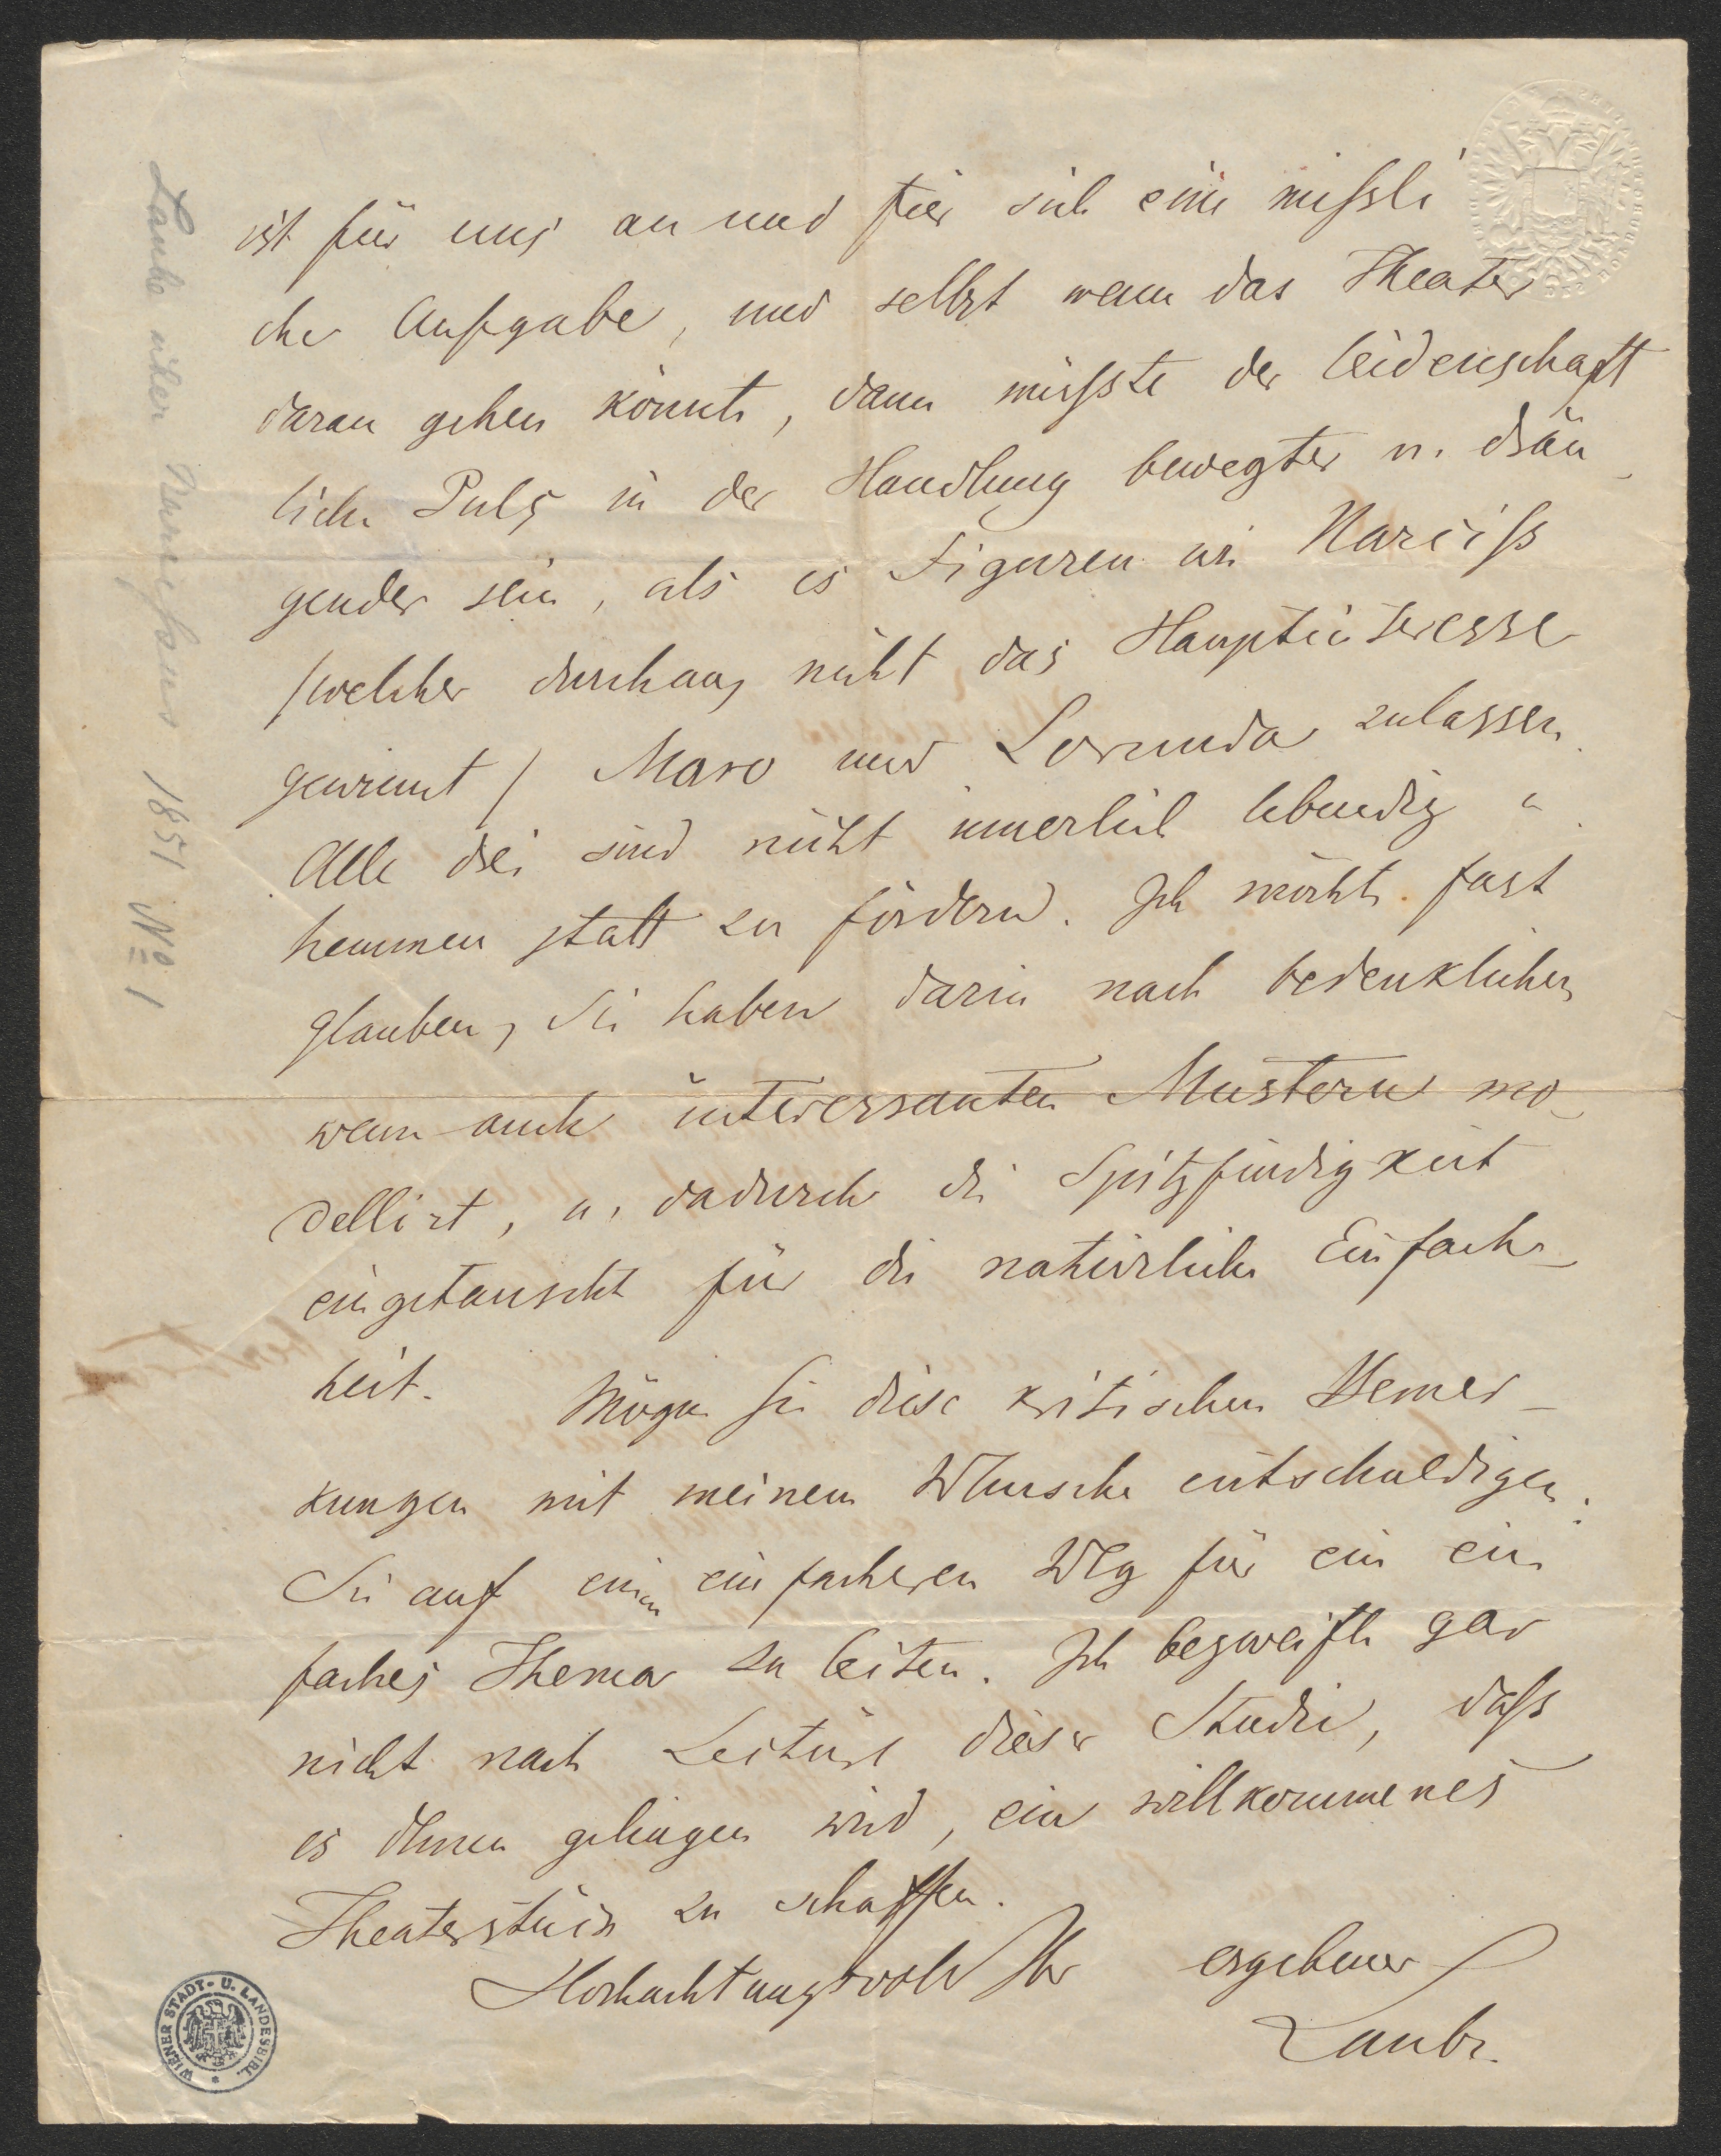 ist für uns an und für sich eine missli
che Aufgabe, und selbst wenn das Theater
daran gehen könnte, dann müsste der leidenschaft
liche Puls in der Handlung bewegter u. drän
gender sein, als es Figuren wie Narciss
(welcher durchaus nicht das Hauptinteresse
gewinnt) Maro und zulassen.
Alle drei sind nicht innerlich lebendig u.
hemmen statt zu fördern. Ich möchte fast
glauben, Sie haben darin nach bedenklichen
wenn auch interessanten Mustern mo-
dellirt, u. dadurch die Spitzfindigkeit
eingetauscht für die natürliche Einfach-
heit. Mögen Sie diese kritischen Bemer-
kungen mit meinem Wunsche entschuldigen:
Sie auf einen einfacheren Weg für ein ein
faches Thema zu leiten. Ich bezweifle gar
nicht nach Lectüre dieser Studie, dass
es Ihnen gelingen wird, ein willkommenes
Theaterstück zu schaffen.
Hochachtungsvoll Ihr ergebener
Laube.
Laube über 1851 No 1
WIENER STADT- U. LANDESBIBL.